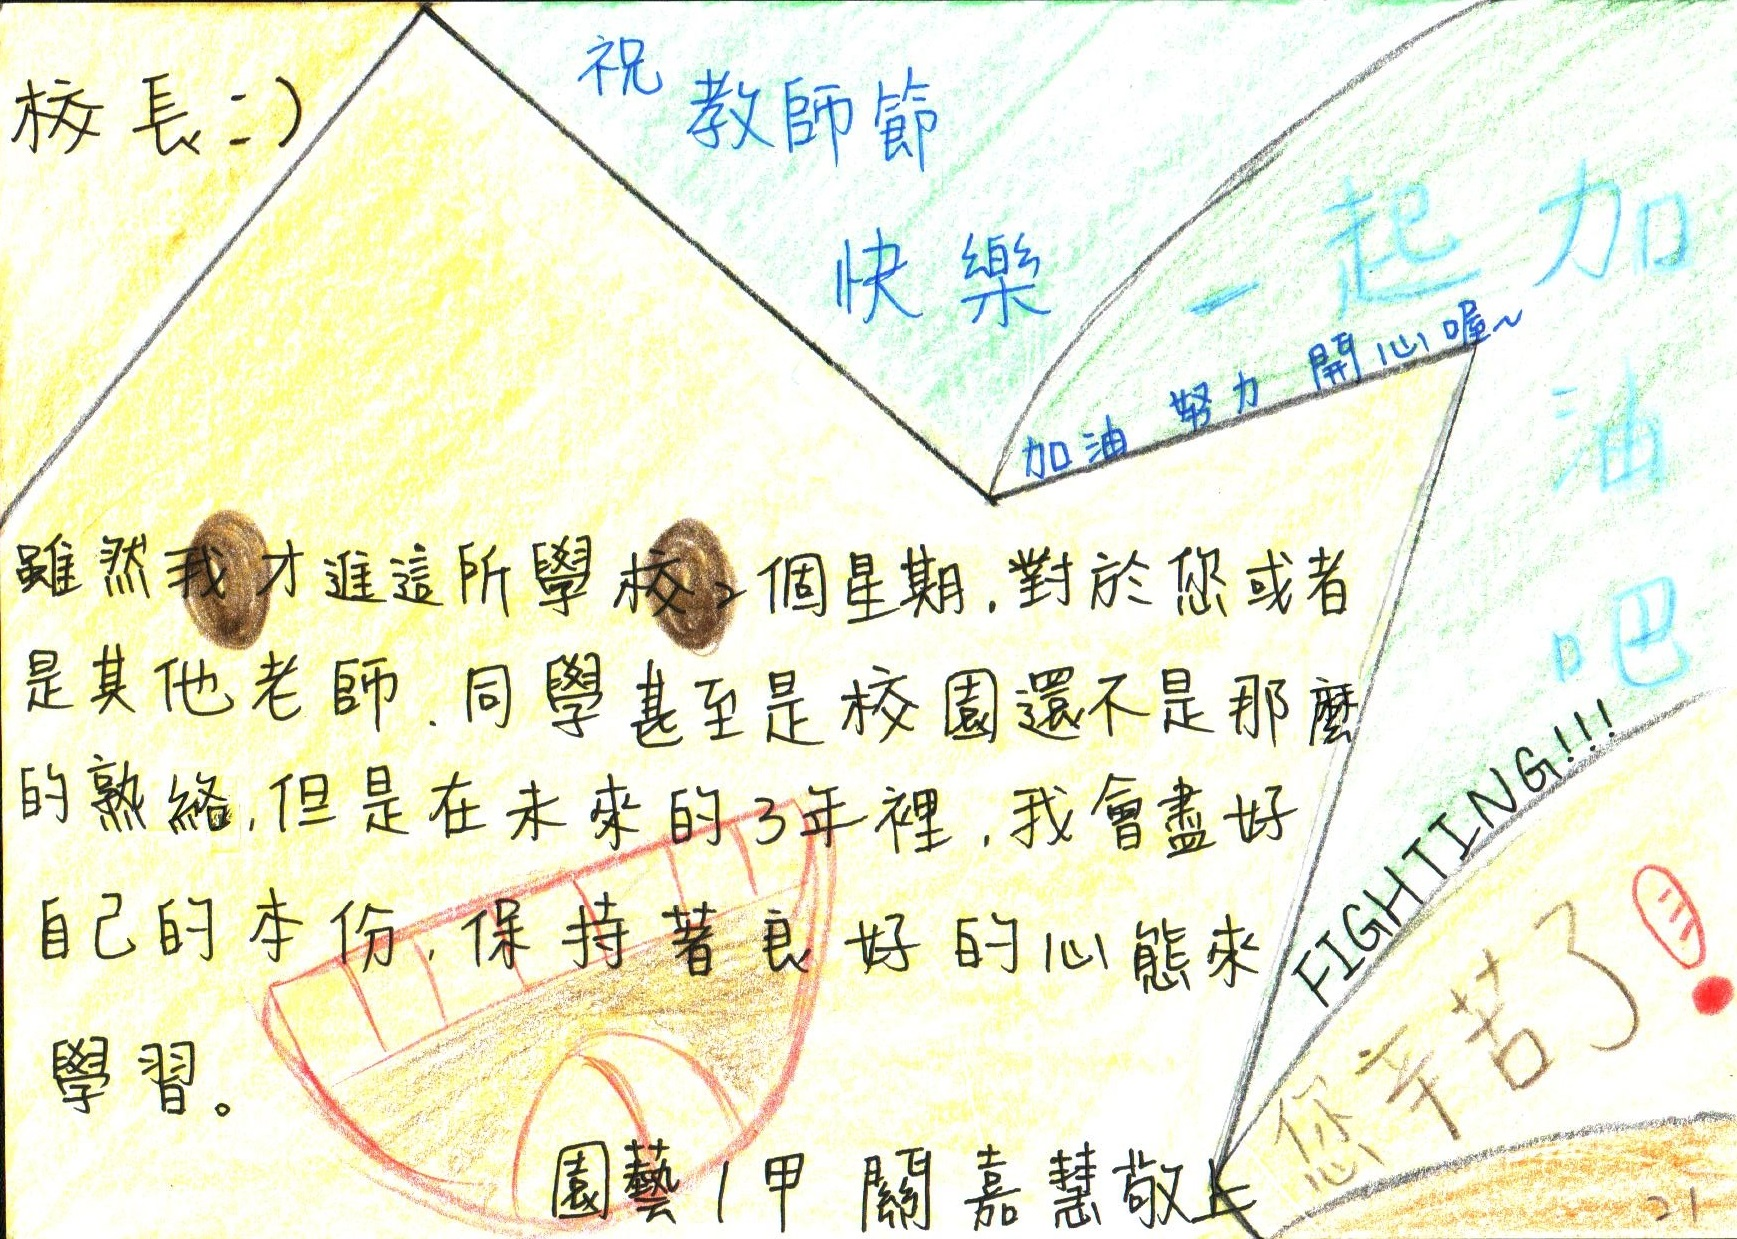 校長=)
祝
教師節
快樂
一起加
油
吧
加油 努力 開心喔~
雖然我才進這所學校2個星期,對於您或者
是其他老師、同學甚至是校園還不是那麼
的熟絡,但是在未來的3年裡,我會盡好
自己的本份,保持著良好的心態來
學習。
FIGHTING!!!
您辛苦了!
園藝1甲 關嘉慧敬上
21